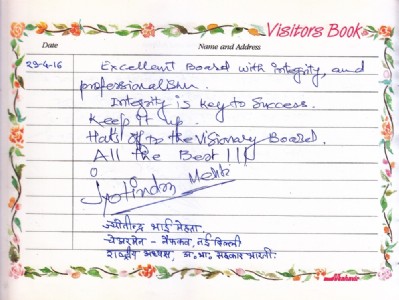 Visitors Book
Date Name and Address
23-4-16 Excellent Board with integrity, and
professionalism.
Integrity is key to success.
Keep it up.
Hats off to the Visionary Board.
All the Best !!!
Jyotindra Mehta
ज्योतीन्द्र भाई मेहता
चेयरमेन - नैफकब, नई दिल्ली
राष्ट्रीय अध्यक्ष, सहकार भारती.